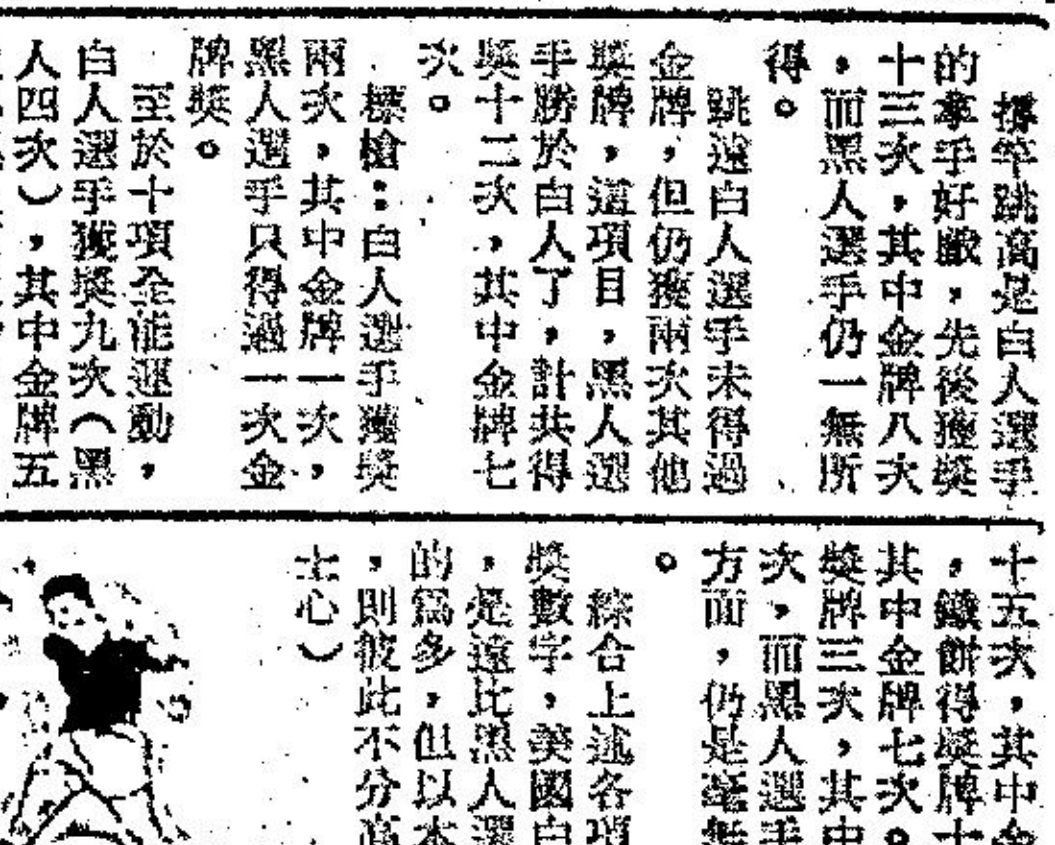 撐竿跳高是白人選手
的拿手好戲，先後獲獎
十三次，其中金牌八次
，而黑人選手仍一無所
得。
跳遠白人選手未得過
金牌，但仍獲兩次其他
獎牌，這項目，黑人選
手勝於白人了，計共得
獎十二次，其中金牌七
次。
標槍：白人選手獲獎
兩次，其中金牌一次，
黑人選手只得過一次金
牌獎。
至於十項全能運動，
白人選手獲獎九次（黑
人四次），其中金牌五
十五次，其中金
，鐵餅得獎牌十
其中金牌七次。
獎牌三次，其中
次，而黑人選手
方面，仍是毫無
。
綜合上述各項
獎數字，美國白
，是遠比黑人選
的爲多，但以本
，則彼此不分高
士心）